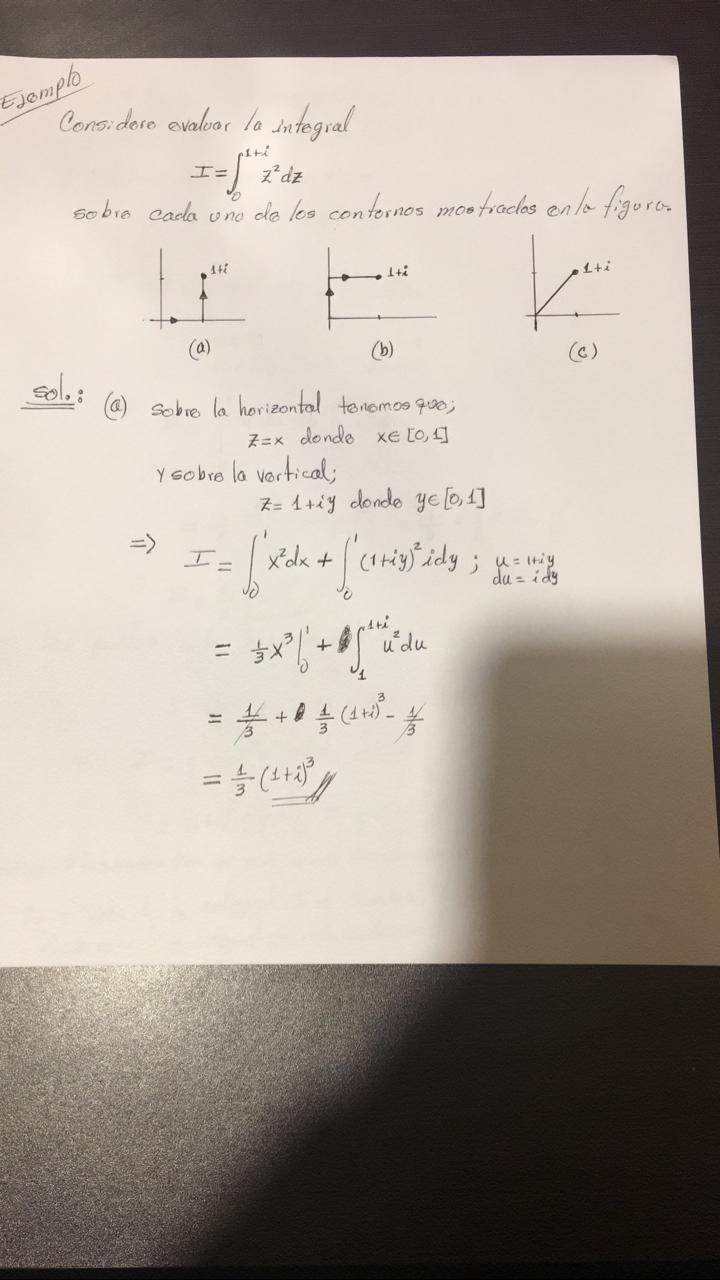 Ejemplo
Considere evaluar la integral
I = ∫₀¹⁺ⁱ z² dz
sobre cada uno de los contornos mostrados en la figura.
1+i 1+i 1+i
(a) (b) (c)
Sol.: (a) Sobre la horizontal tenemos que;
z = x donde x ∈ [0,1]
Y sobre la vertical;
z = 1+iy donde y ∈ [0,1]
=> I = ∫₀¹ x² dx + ∫₀¹ (1+iy)² i dy ; u = 1+iy
du = i dy
= 1/3 x³ |₀¹ + ∫₁¹⁺ⁱ u² du
= 1/3 + 1/3 (1+i)³ - 1/3
= 1/3 (1+i)³